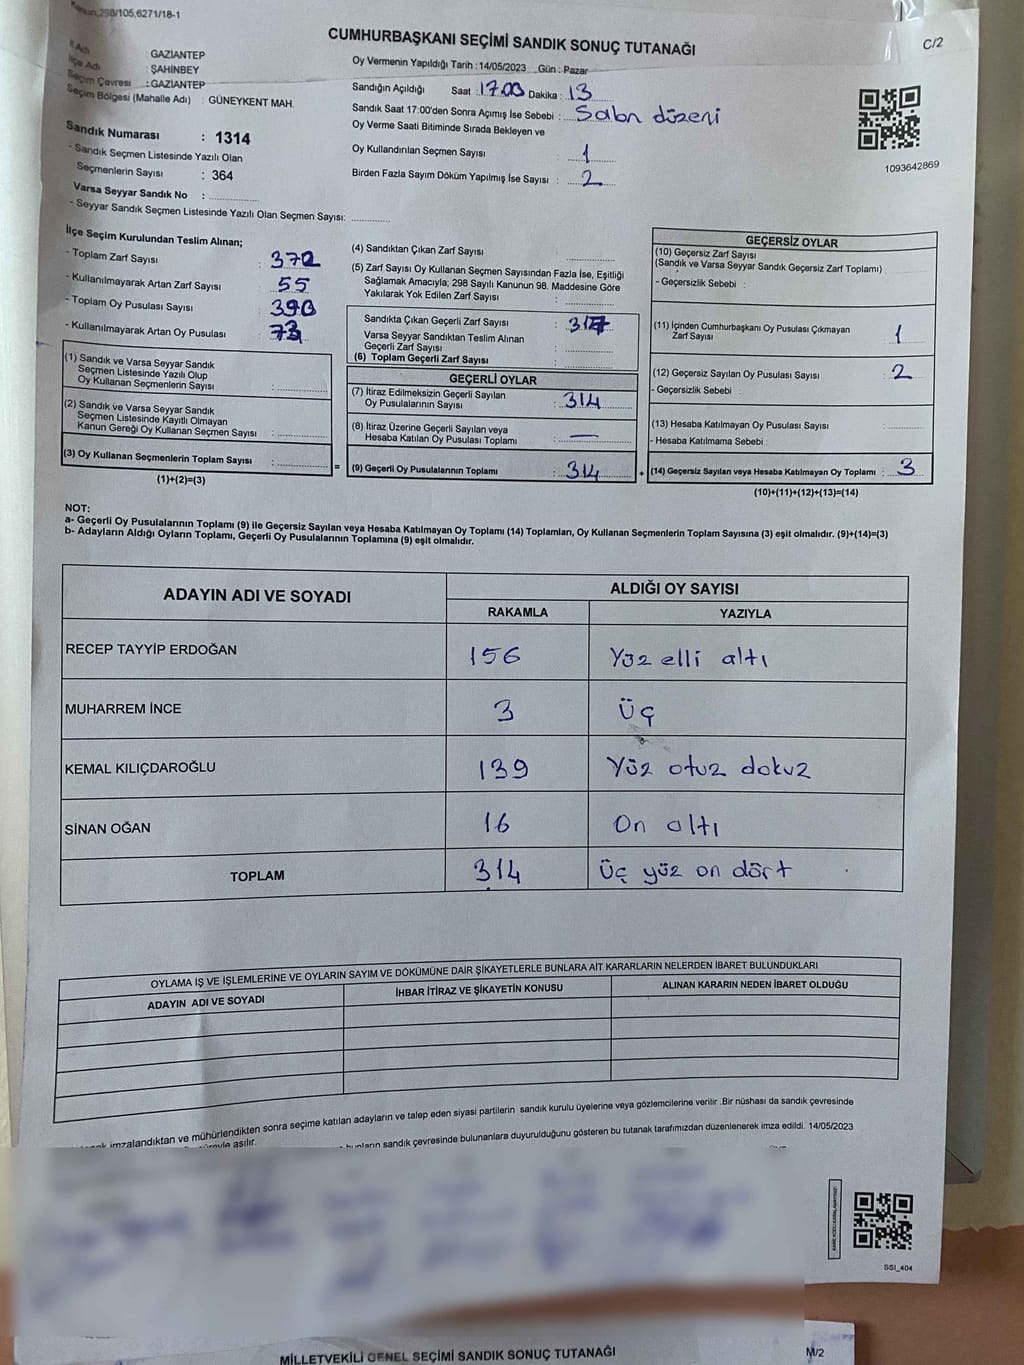 Kanun;298/105,6271/18-1
CUMHURBAŞKANI SEÇİMİ SANDIK SONUÇ TUTANAĞI
C/2
İl Adı : GAZİANTEP
İlçe Adı : ŞAHİNBEY
Seçim Çevresi : GAZİANTEP
Seçim Bölgesi (Mahalle Adı) : GÜNEYKENT MAH.
Sandık Numarası : 1314
- Sandık Seçmen Listesinde Yazılı Olan
Seçmenlerin Sayısı : 364
Varsa Seyyar Sandık No :
- Seyyar Sandık Seçmen Listesinde Yazılı Olan Seçmen Sayısı:
Oy Vermenin Yapıldığı Tarih : 14/05/2023 Gün : Pazar
Sandığın Açıldığı Saat : 17.00 Dakika : 13
Sandık Saat 17:00'den Sonra Açımış İse Sebebi : Salon düzeni
Oy Verme Saati Bitiminde Sırada Bekleyen ve
Oy Kullandırılan Seçmen Sayısı : 1
Birden Fazla Sayım Döküm Yapılmış İse Sayısı : 2
1093642869
İlçe Seçim Kurulundan Teslim Alınan;
- Toplam Zarf Sayısı : 372
- Kullanılmayarak Artan Zarf Sayısı : 55
- Toplam Oy Pusulası Sayısı : 390
- Kullanılmayarak Artan Oy Pusulası : 73
(1) Sandık ve Varsa Seyyar Sandık
Seçmen Listesinde Yazılı Olup
Oy Kullanan Seçmenlerin Sayısı :
(2) Sandık ve Varsa Seyyar Sandık
Seçmen Listesinde Kayıtlı Olmayan
Kanun Gereği Oy Kullanan Seçmen Sayısı :
(3) Oy Kullanan Seçmenlerin Toplam Sayısı :
(1)+(2)=(3)
(4) Sandıktan Çıkan Zarf Sayısı :
(5) Zarf Sayısı Oy Kullanan Seçmen Sayısından Fazla İse, Eşitliği
Sağlamak Amacıyla; 298 Sayılı Kanunun 98. Maddesine Göre
Yakılarak Yok Edilen Zarf Sayısı :
Sandıkta Çıkan Geçerli Zarf Sayısı : 317
Varsa Seyyar Sandıktan Teslim Alınan
Geçerli Zarf Sayısı :
(6) Toplam Geçerli Zarf Sayısı :
GEÇERLİ OYLAR
(7) İtiraz Edilmeksizin Geçerli Sayılan
Oy Pusulalarının Sayısı : 314
(8) İtiraz Üzerine Geçerli Sayılan veya
Hesaba Katılan Oy Pusulası Toplamı : —
= (9) Geçerli Oy Pusulalarının Toplamı : 314
GEÇERSİZ OYLAR
(10) Geçersiz Zarf Sayısı
(Sandık ve Varsa Seyyar Sandık Geçersiz Zarf Toplamı)
- Geçersizlik Sebebi :
(11) İçinden Cumhurbaşkanı Oy Pusulası Çıkmayan
Zarf Sayısı : 1
(12) Geçersiz Sayılan Oy Pusulası Sayısı : 2
- Geçersizlik Sebebi :
(13) Hesaba Katılmayan Oy Pusulası Sayısı :
- Hesaba Katılmama Sebebi :
+ (14) Geçersiz Sayılan veya Hesaba Katılmayan Oy Toplamı : 3
(10)+(11)+(12)+(13)=(14)
NOT:
a- Geçerli Oy Pusulalarının Toplamı (9) ile Geçersiz Sayılan veya Hesaba Katılmayan Oy Toplamı (14) Toplamları, Oy Kullanan Seçmenlerin Toplam Sayısına (3) eşit olmalıdır. (9)+(14)=(3)
b- Adayların Aldığı Oyların Toplamı, Geçerli Oy Pusulalarının Toplamına (9) eşit olmalıdır.
ADAYIN ADI VE SOYADI
ALDIĞI OY SAYISI
RAKAMLA YAZIYLA
RECEP TAYYİP ERDOĞAN 156 Yüz elli altı
MUHARREM İNCE 3 Üç
KEMAL KILIÇDAROĞLU 139 Yüz otuz dokuz
SİNAN OĞAN 16 On altı
TOPLAM 314 Üç yüz on dört
OYLAMA İŞ VE İŞLEMLERİNE VE OYLARIN SAYIM VE DÖKÜMÜNE DAİR ŞİKAYETLERLE BUNLARA AİT KARARLARIN NELERDEN İBARET BULUNDUKLARI
ADAYIN ADI VE SOYADI İHBAR İTİRAZ VE ŞİKAYETİN KONUSU ALINAN KARARIN NEDEN İBARET OLDUĞU
imzalandıktan ve mühürlendikten sonra seçime katılan adayların ve talep eden siyasi partilerin sandık kurulu üyelerine veya gözlemcilerine verilir .Bir nüshası da sandık çevresinde
asılır.
bunların sandık çevresinde bulunanlara duyurulduğunu gösteren bu tutanak tarafımızdan düzenlenerek imza edildi. 14/05/2023
SSI_404
MİLLETVEKİLİ GENEL SEÇİMİ SANDIK SONUÇ TUTANAĞI
M/2